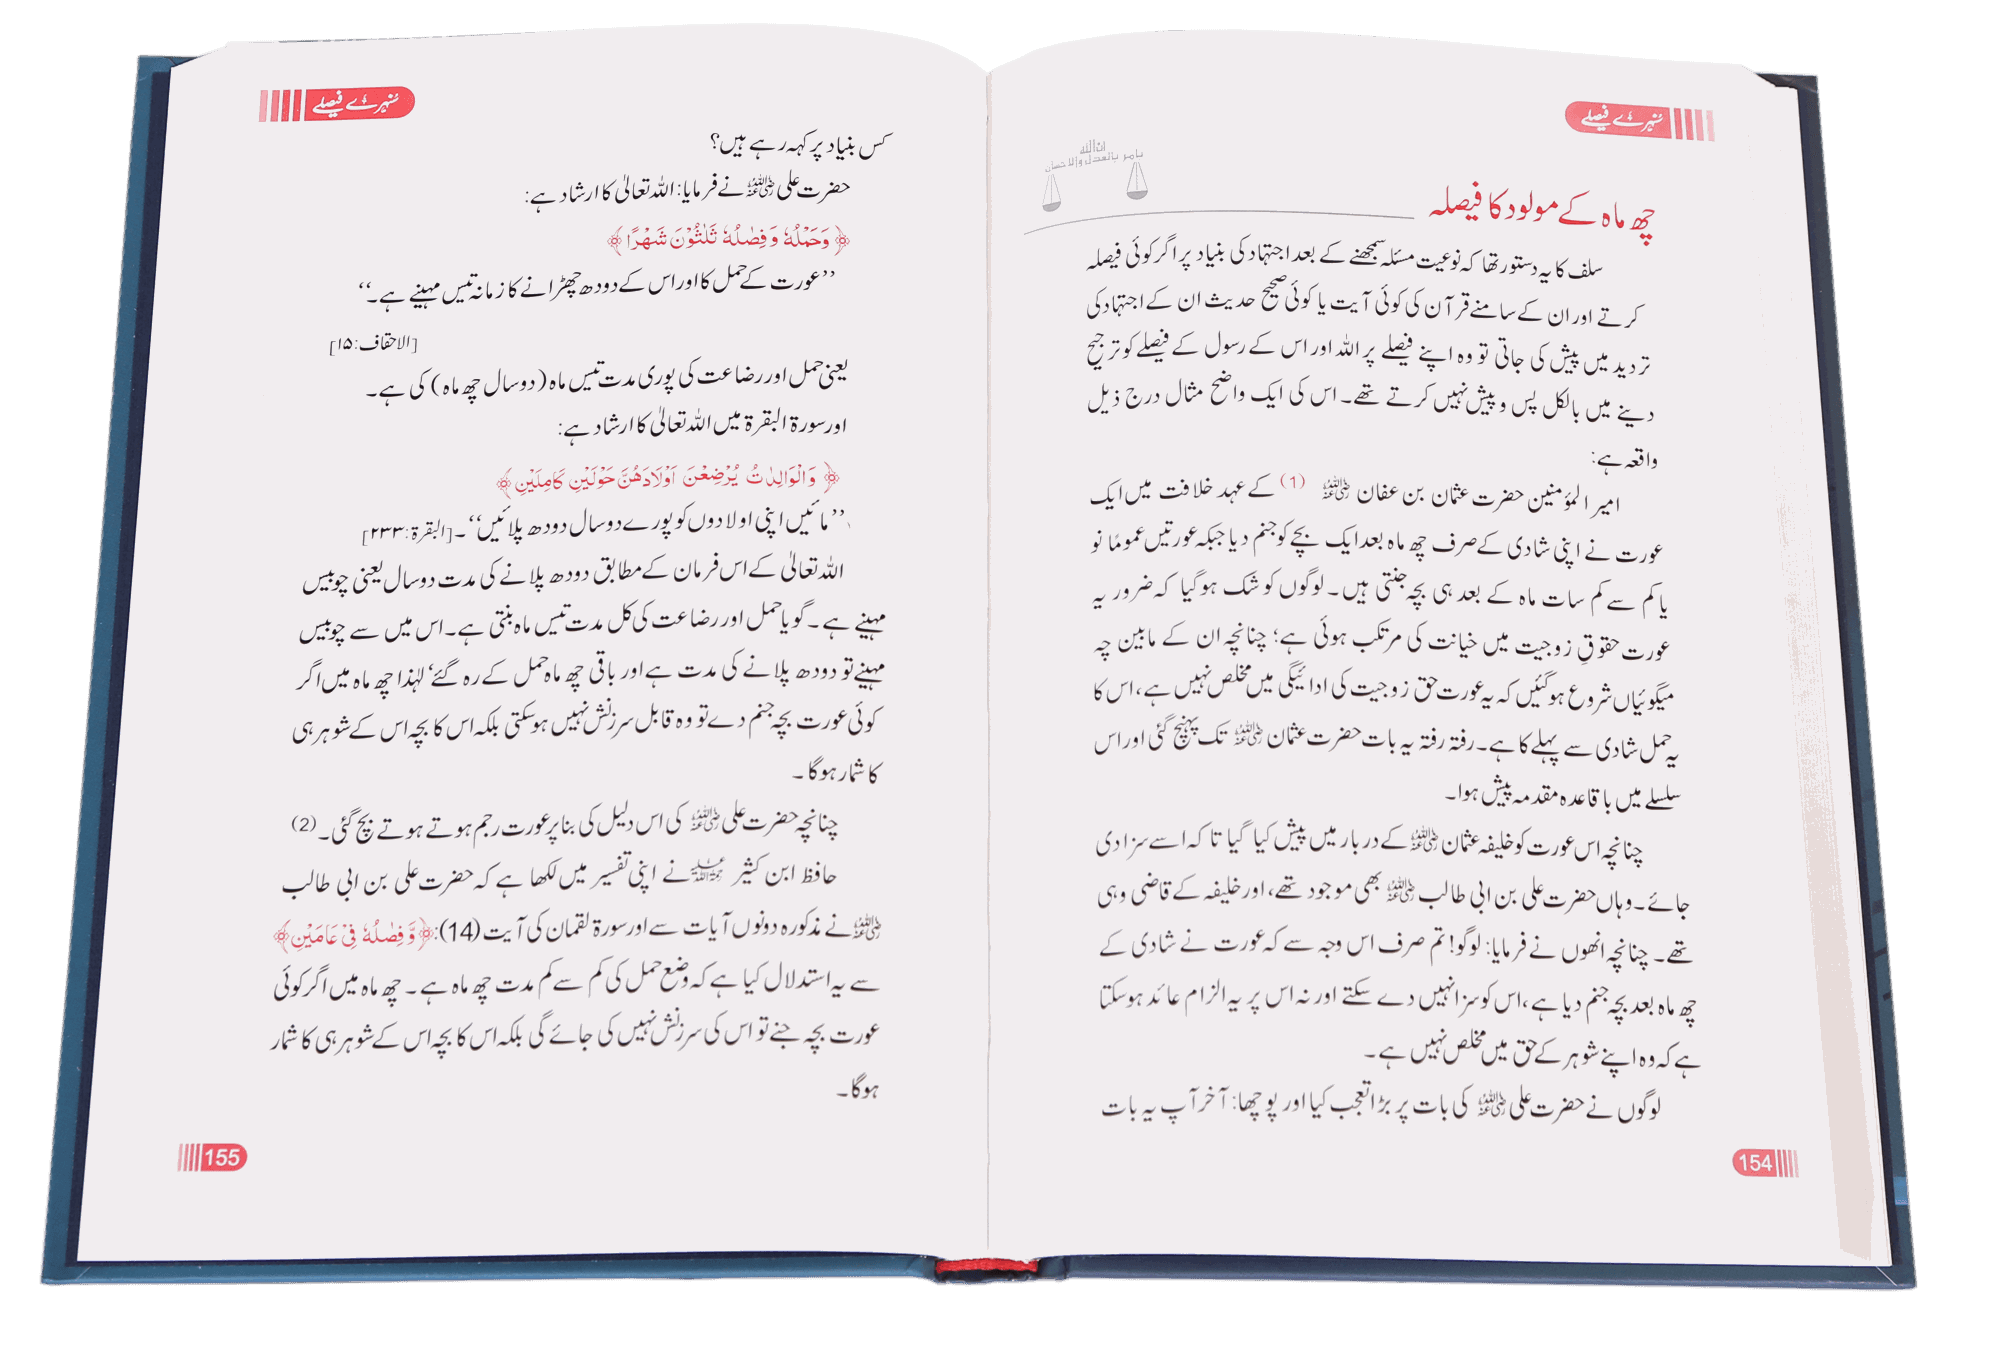 سنہرے فیصلے
ان اللہ
یامر بالعدل والاحسان
چھ ماہ کے مولود کا فیصلہ
سلف کا یہ دستور تھا کہ نوعیت مسئلہ سمجھنے کے بعد اجتہاد کی بنیاد پر اگر کوئی فیصلہ
کرتے اور ان کے سامنے قرآن کی کوئی آیت یا کوئی صحیح حدیث ان کے اجتہاد کی
تردید میں پیش کی جاتی تو وہ اپنے فیصلے پر اللہ اور اس کے رسول کے فیصلے کو ترجیح
دینے میں بالکل پس و پیش نہیں کرتے تھے۔ اس کی ایک واضح مثال درج ذیل
واقعہ ہے:
امیر المؤمنین حضرت عثمان بن عفان ﷜ (1) کے عہد خلافت میں ایک
عورت نے اپنی شادی کے صرف چھ ماہ بعد ایک بچے کو جنم دیا جبکہ عورتیں عموماً نو
یا کم سے کم سات ماہ کے بعد ہی بچہ جنتی ہیں۔ لوگوں کو شک ہو گیا کہ ضرور یہ
عورت حقوقِ زوجیت میں خیانت کی مرتکب ہوئی ہے؛ چنانچہ ان کے مابین چہ
میگوئیاں شروع ہو گئیں کہ یہ عورت حق زوجیت کی ادائیگی میں مخلص نہیں ہے، اس کا
یہ حمل شادی سے پہلے کا ہے۔ رفتہ رفتہ یہ بات حضرت عثمان ﷜ تک پہنچ گئی اور اس
سلسلے میں باقاعدہ مقدمہ پیش ہوا۔
چنانچہ اس عورت کو خلیفہ عثمان ﷜ کے دربار میں پیش کیا گیا تا کہ اسے سزا دی
جائے۔ وہاں حضرت علی بن ابی طالب ﷜ بھی موجود تھے، اور خلیفہ کے قاضی وہی
تھے۔ چنانچہ انھوں نے فرمایا: لوگو! تم صرف اس وجہ سے کہ عورت نے شادی کے
چھ ماہ بعد بچہ جنم دیا ہے، اس کو سزا نہیں دے سکتے اور نہ اس پر یہ الزام عائد ہو سکتا
ہے کہ وہ اپنے شوہر کے حق میں مخلص نہیں ہے۔
لوگوں نے حضرت علی ﷜ کی بات پر بڑا تعجب کیا اور پوچھا: آخر آپ یہ بات
154
سنہرے فیصلے
کس بنیاد پر کہہ رہے ہیں؟
حضرت علی ﷜ نے فرمایا: اللہ تعالیٰ کا ارشاد ہے:
﴿وَحَمْلُهٗ وَفِصٰلُهٗ ثَلٰثُوْنَ شَهْرًا﴾
’’عورت کے حمل کا اور اس کے دودھ چھڑانے کا زمانہ تیس مہینے ہے۔‘‘
[الاحقاف:۱۵]
یعنی حمل اور رضاعت کی پوری مدت تیس ماہ (دو سال چھ ماہ) کی ہے۔
اور سورۃ البقرۃ میں اللہ تعالیٰ کا ارشاد ہے:
﴿وَالْوَالِدٰتُ يُرْضِعْنَ اَوْلَادَهُنَّ حَوْلَيْنِ كَامِلَيْنِ﴾
’’مائیں اپنی اولادوں کو پورے دو سال دودھ پلائیں‘‘۔ [البقرۃ:۲۳۳]
اللہ تعالیٰ کے اس فرمان کے مطابق دودھ پلانے کی مدت دو سال یعنی چوبیس
مہینے ہے۔ گویا حمل اور رضاعت کی کل مدت تیس ماہ بنتی ہے۔ اس میں سے چوبیس
مہینے تو دودھ پلانے کی مدت ہے اور باقی چھ ماہ حمل کے رہ گئے‘ لہٰذا چھ ماہ میں اگر
کوئی عورت بچہ جنم دے تو وہ قابل سرزنش نہیں ہو سکتی بلکہ اس کا بچہ اس کے شوہر ہی
کا شمار ہوگا۔
چنانچہ حضرت علی ﷜ کی اس دلیل کی بنا پر عورت رجم ہوتے ہوتے بچ گئی۔ (2)
حافظ ابن کثیر ﷫ نے اپنی تفسیر میں لکھا ہے کہ حضرت علی بن ابی طالب
﷜ نے مذکورہ دونوں آیات سے اور سورۃ لقمان کی آیت (14): ﴿وَّفِصٰلُهٗ فِيْ عَامَيْنِ﴾
سے یہ استدلال کیا ہے کہ وضع حمل کی کم سے کم مدت چھ ماہ ہے۔ چھ ماہ میں اگر کوئی
عورت بچہ جنے تو اس کی سرزنش نہیں کی جائے گی بلکہ اس کا بچہ اس کے شوہر ہی کا شمار
ہوگا۔
155